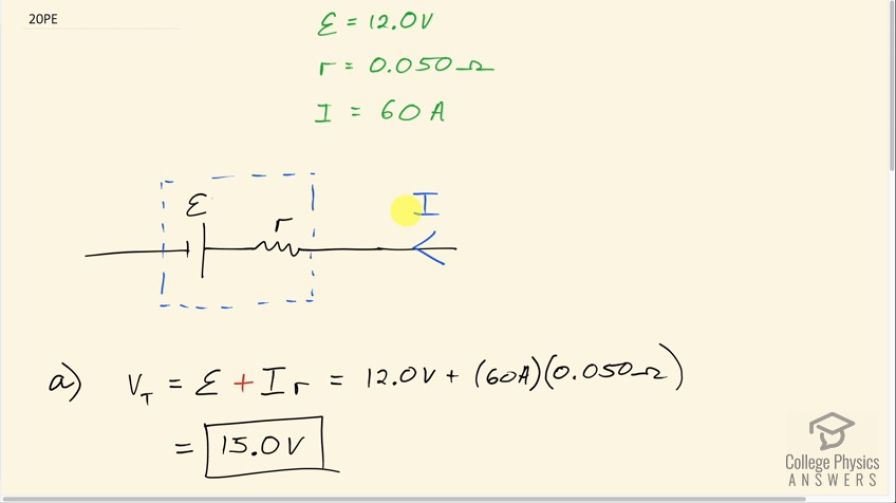 20PE
ℰ = 12.0V
r = 0.050Ω
I = 60A
ℰ
r
I
a) V_T = ℰ + Ir = 12.0V + (60A)(0.050Ω)
= 15.0V
College Physics
ANSWERS